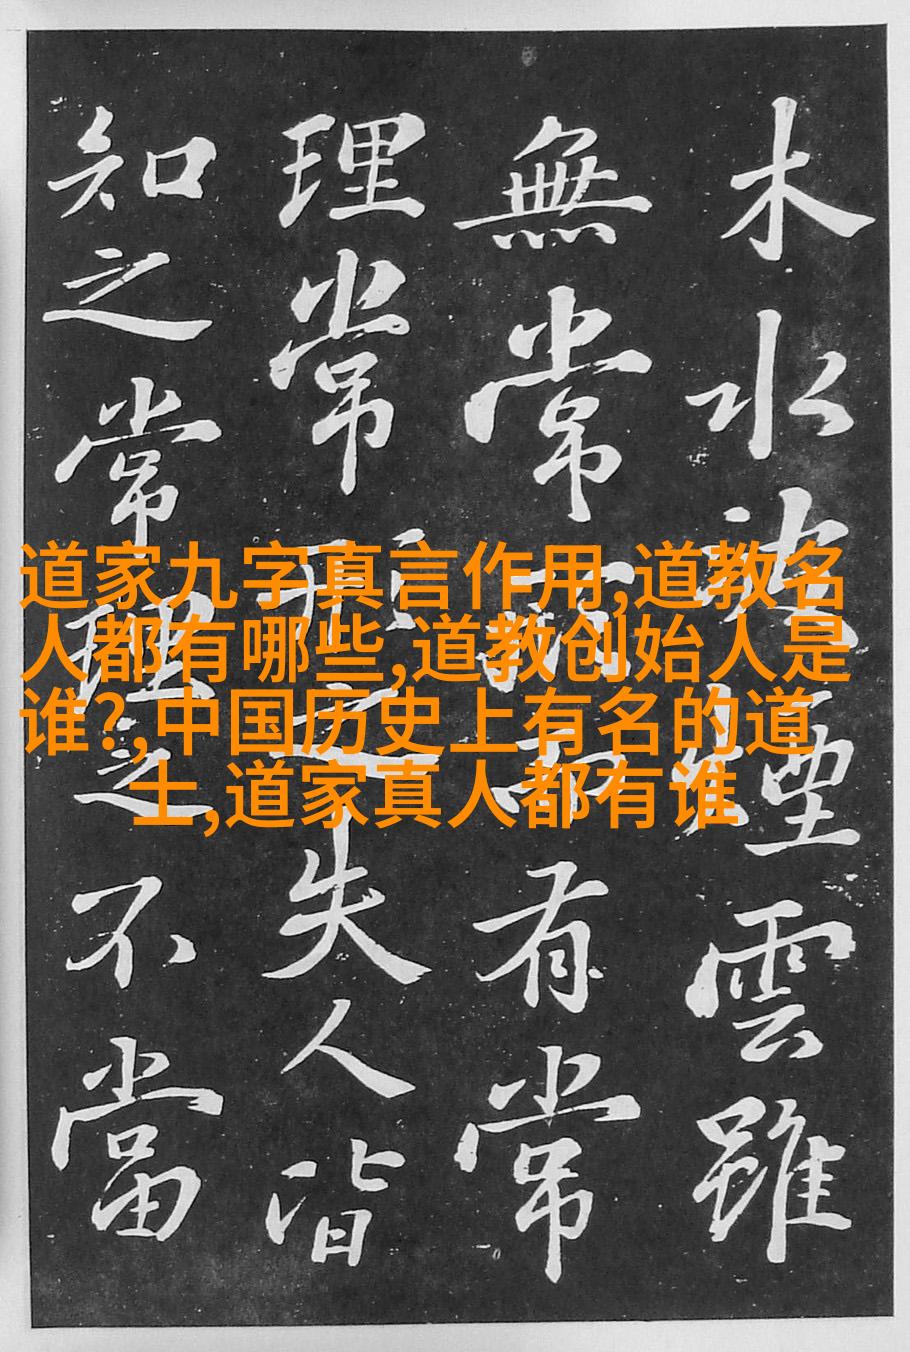 木水波煙雲雖
無常形而有常
理常形之失人皆
知之常理之不當
道家九字真言作用,道教名
人都有哪些,道教创始人是
谁?,中国历史上有名的道
士,道家真人都有谁